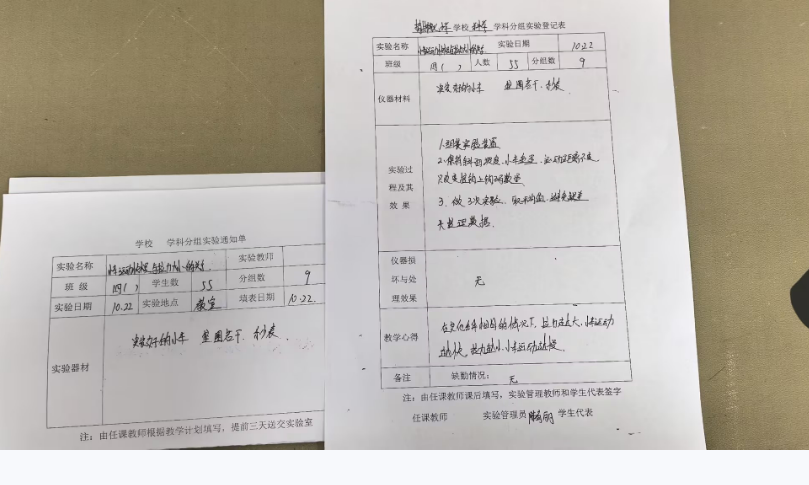 学校 学科分组实验通知单
实验名称 小车运动快慢与拉力大小的关系 实验教师
班 级 四( ) 学生数 55 分组数 9
实验日期 10.22 实验地点 教室 填表日期 10.22.
实验器材 小车 垫圈若干、秒表
注:由任课教师根据教学计划填写,提前三天送交实验室
小学 学校 科学 学科分组实验登记表
实验名称 实验日期 10.22
班级 四( ) 人数 55 分组数 9
仪器材料 小车 垫圈若干、秒表
实验过程及其效果
1.组装实验装置
2.保持 小车 运动距离不变,
只改变 上的 数量
3、做3次实验、取平均值、避免
天 数据.
仪器损坏与处理效果 无
教学心得 在 相同的情况下,拉力越大,小车运动
越快,拉力越小,小车运动越慢.
备注 缺勤情况: 无
注:由任课教师课后填写,实验管理教师和学生代表签字
任课教师 实验管理员 学生代表